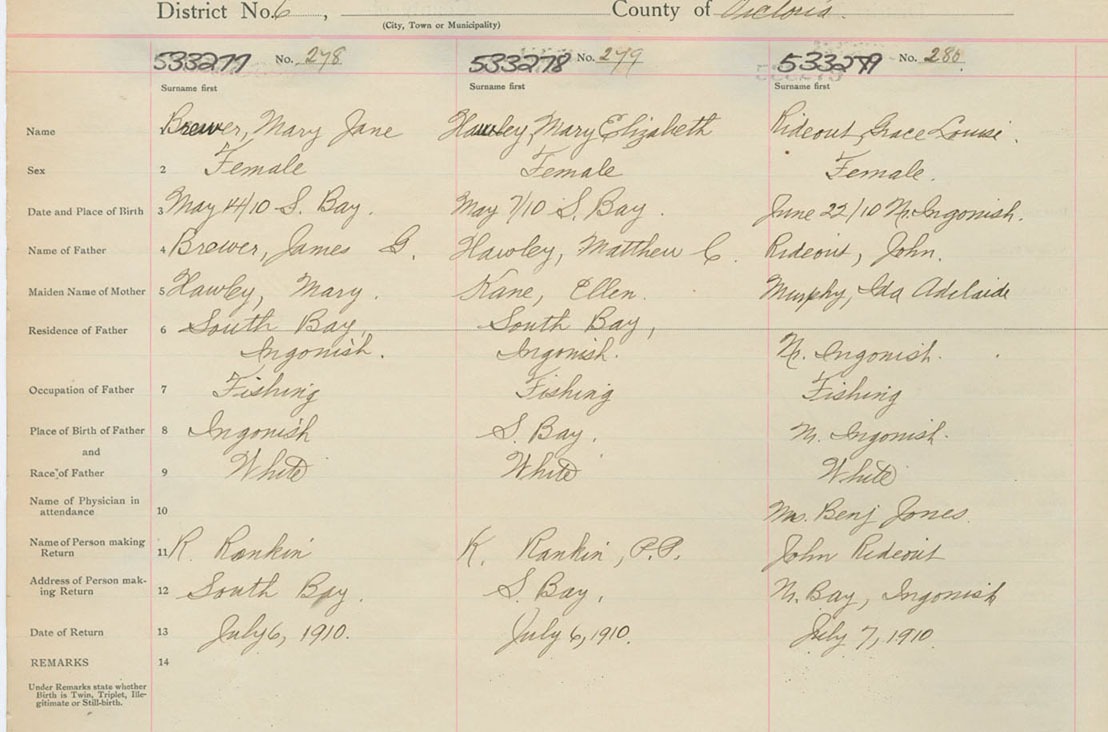 District No. 6 , County of Victoria.
(City, Town or Municipality)
533277 No. 278 533278 No. 279 533279 No. 280
Surname first Surname first Surname first
Name 1 Brewer, Mary Jane Hawley, Mary Elizabeth Rideout, Grace Louise.
Sex 2 Female Female Female.
Date and Place of Birth 3 May 14/10 S. Bay. May 7/10 S. Bay. June 22/10 N. Ingonish.
Name of Father 4 Brewer, James G. Hawley, Matthew C. Rideout, John.
Maiden Name of Mother 5 Hawley, Mary. Kane, Ellen. Murphy, Ida Adelaide
Residence of Father 6 South Bay, South Bay,
Ingonish. Ingonish. N. Ingonish.
Occupation of Father 7 Fishing Fishing Fishing
Place of Birth of Father 8 Ingonish S. Bay. N. Ingonish.
and
Race of Father 9 White White White
Name of Physician in
attendance 10 Mrs. Benj Jones.
Name of Person making
Return 11 R. Rankin K. Rankin, P.P. John Rideout
Address of Person mak-
ing Return 12 South Bay. S. Bay, N. Bay, Ingonish
Date of Return 13 July 6, 1910. July 6, 1910. July 7, 1910
REMARKS 14
Under Remarks state whether
Birth is Twin, Triplet, Ille-
gitimate or Still-birth.